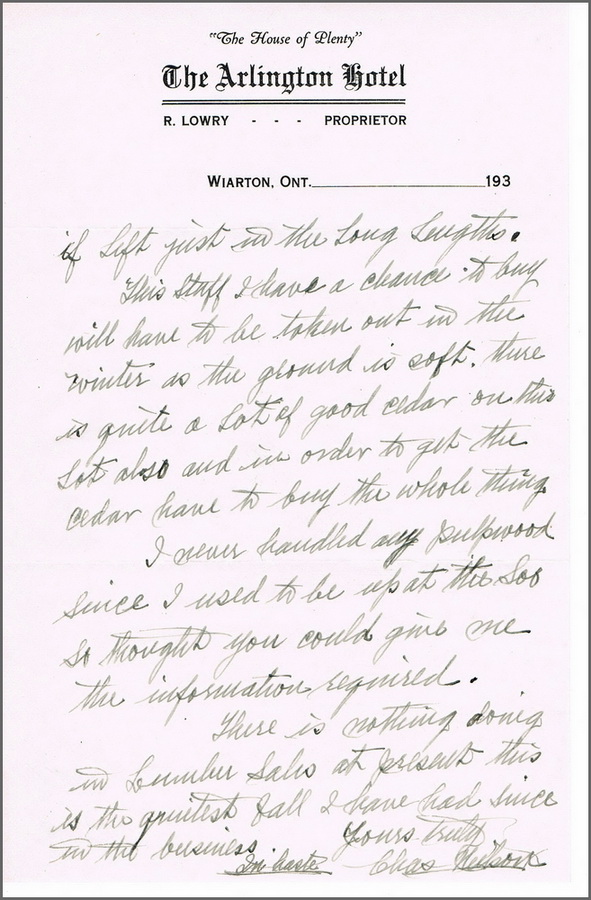 "The House of Plenty"
The Arlington Hotel
R. LOWRY - - - PROPRIETOR
WIARTON, ONT. 193
if left just in the long lengths.
This stuff I have a chance to buy
will have to be taken out in the
winter as the ground is soft. there
is quite a lot of good cedar on this
lot also and in order to get the
cedar have to buy the whole thing
I never handled any pulpwood
since I used to be up at the Soo
so thought you could give me
the information required.
There is nothing doing
in Lumber Sales at present this
is the quietest fall I have had since
in the business. Yours truly
In haste Chas